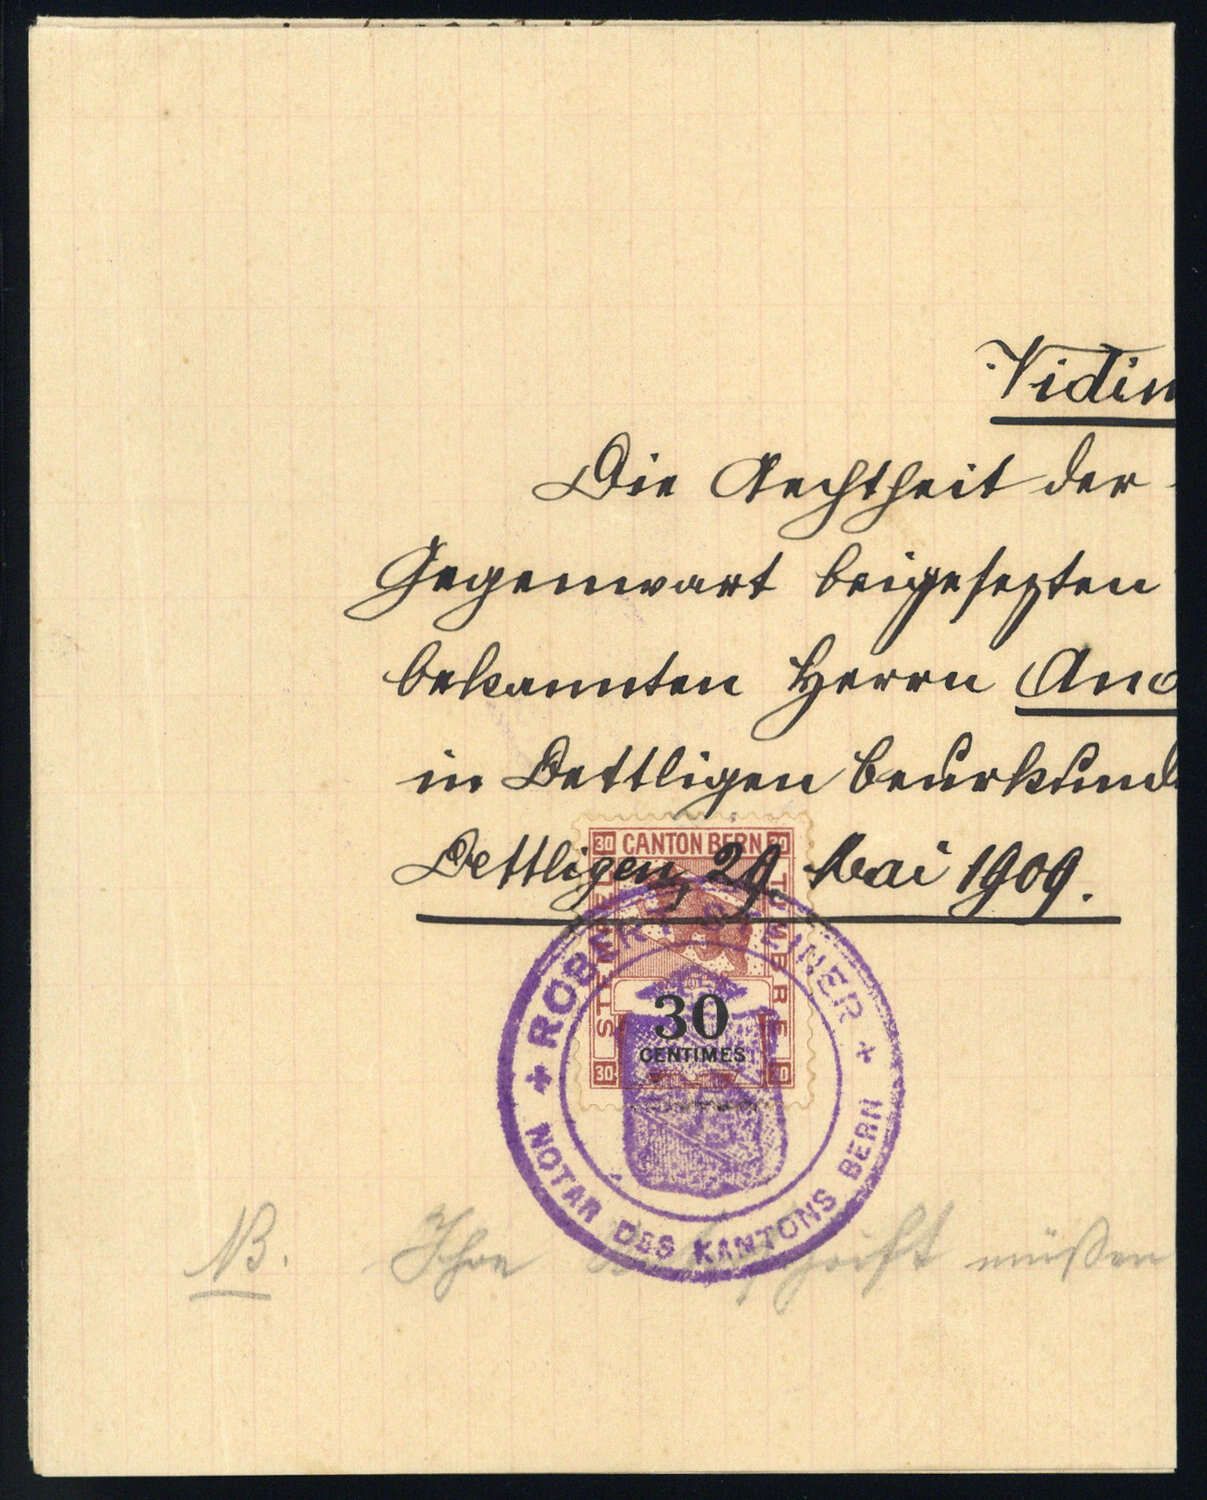 Vidim
Die Aechtheit der
Gegenwart beigesezten
bekannten Herrn And
in Dettligen beurkund
Dettligen, 29. Mai 1909.
30 CANTON BERN 30
STEMPEL
TIMBRE
30
CENTIMES
30 30
ROBERT STEINER
NOTAR DES KANTONS BERN
NB. Ihre Unterschrift müßen